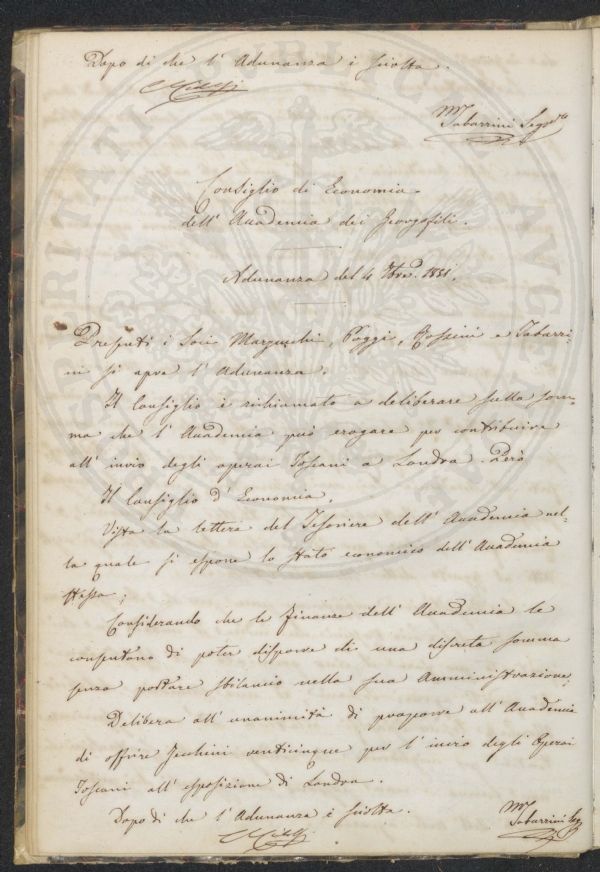 Dopo di che l'Adunanza è sciolta.
M. Tabarrini Segr.
Consiglio di Economia
dell'Accademia dei Georgofili.
Adunanza del 4 7bre. 1851.
Presenti i Soci Marzucchi, Poggi, Rossini e Tabarri-
ni si apre l'Adunanza.
Il Consiglio è richiamato a deliberare sulla som-
ma che l'Accademia può erogare per contribuire
all'invio degli operai Toscani a Londra. Però
Il Consiglio d'Economia,
Vista la lettera del Tesoriere dell'Accademia nel-
la quale si espone lo stato economico dell'Accademia
stessa;
Considerando che le finanze dell'Accademia le
consentono di poter disporre di una discreta somma
senza portare sbilancio nella sua Amministrazione;
Delibera all'unanimità di proporre all'Accademia
di offrire Zecchini venticinque per l'invio degli Operai
Toscani all'esposizione di Londra.
Dopo di che l'Adunanza è sciolta.
M. Tabarrini Seg.
PROSPERITATI PUBLICAE AUGENDAE